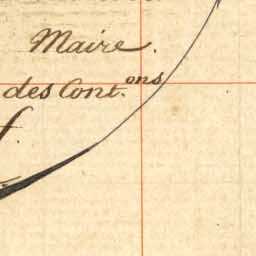 Maire.
des Cont.ons